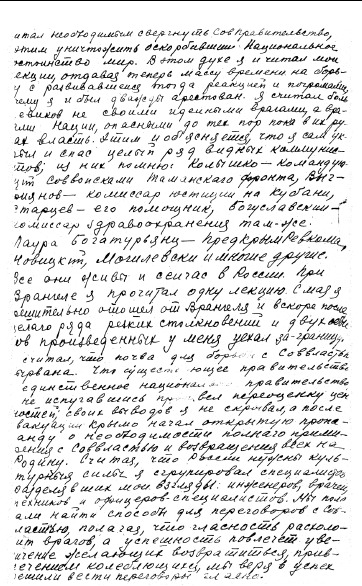 итал необходимым свергнуть СовПравительство,
этим уничтожить оскорбивший Национальное
достоинство мир. В этом духе я и читал мои
лекции, отдавая теперь массу времени на борь-
бу с развивавшейся тогда реакцией и
чему я и был дважды арестован. Я считал боль
шевиков не своими идейными врагами, а вра-
гами Нации, опасными до тех пор пока в их ру
ках власть. Этим и объясняется, что я сам ук-
рыл и спас целый ряд видных коммунис-
тов; из них помню: Колышко — командую-
щий Соввойсками Таманского фронта,
— комиссар юстиции на Кубани,
— его помощник, Богуславский —
комиссар здравоохранения там-же.
Лаура Богатурьянц — предкрымРевкома,
Новицкий, Могилевский и многие другие.
Все они живы и сейчас в России. При
Врангеле я прочитал одну лекцию. С мая я
решительно отошел от Врангеля и вскоре после
целого ряда резких столкновений и двух обыс
ков произведенных у меня уехал за-границу.
считал, что почва для борьбы с Соввластью
вырвана. Что существующее правительство
единственное национальное правительство
не испугавшись произвел переоценку цен
ностей; своих выводов я не скрывал, а после
эвакуации Крыма начал открытую пропа-
ганду о необходимости полного прими-
рения с Соввластью и возвращения всех на
Родину. Считая, что России нужны куль-
турные силы я сгруппировал специалистов
разделявших мои взгляды: инженеров, врачей,
техников и офицеров-специалистов. Мы
искали найти способы для переговоров с Сов-
властью, полагая, что гласность расколо-
ит врагов, а успешность повлечет уве-
личение желающих возвратиться, прив-
лечением колеблющихся, мы веря в успех
решили вести переговоры гласно.